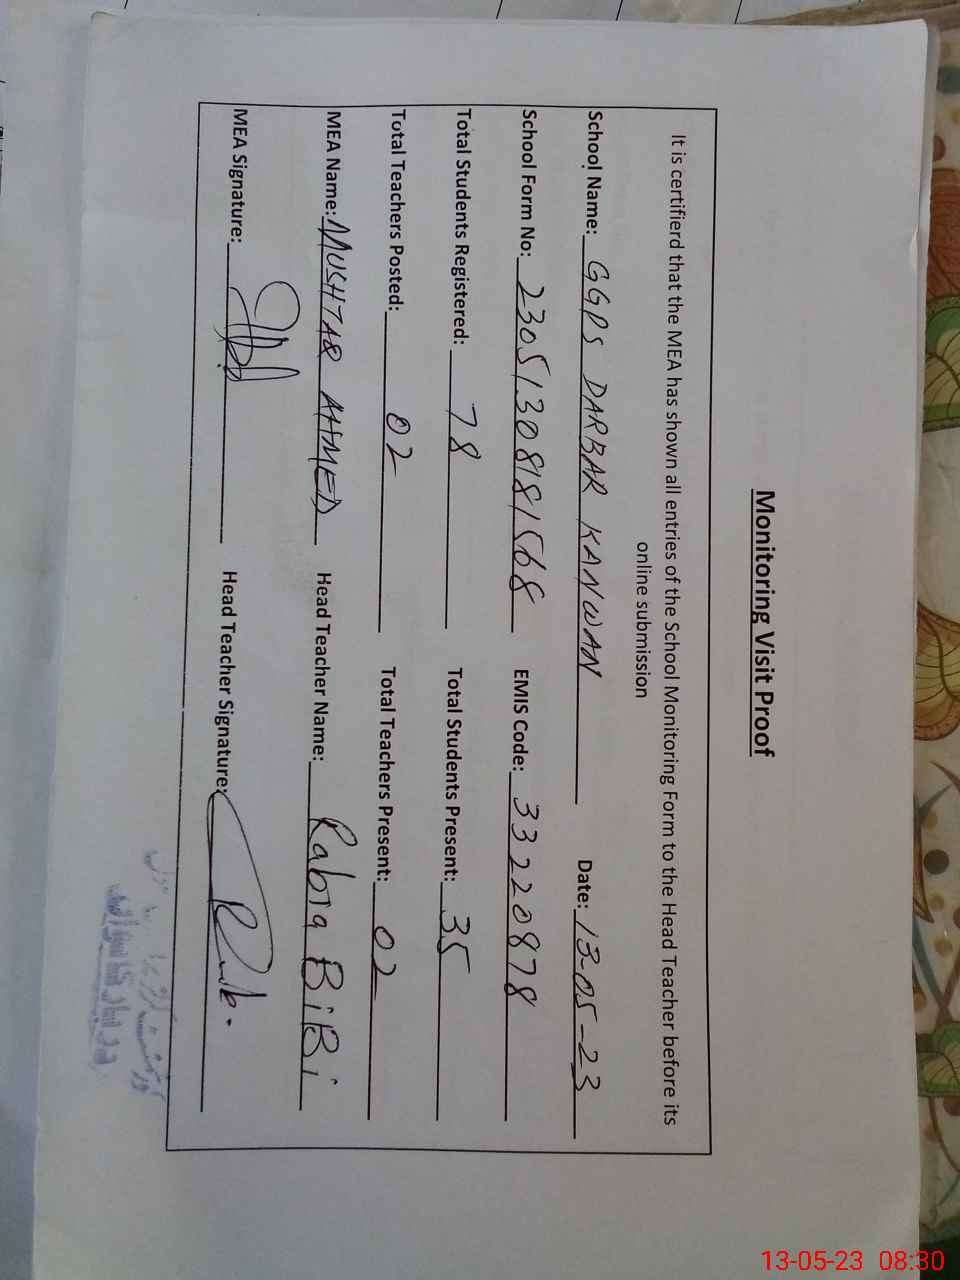 Monitoring Visit Proof
It is certifierd that the MEA has shown all entries of the School Monitoring Form to the Head Teacher before its
online submission
School Name: GGPS DARBAR KANWAN Date: 13-05-23
School Form No: 23051308181568 EMIS Code: 33220878
Total Students Registered: 78 Total Students Present: 35
Total Teachers Posted: 02 Total Teachers Present: 02
MEA Name: MUSHTAQ AHMED Head Teacher Name: Rabia BiBi
MEA Signature: Head Teacher Signature:
13-05-23 08:30